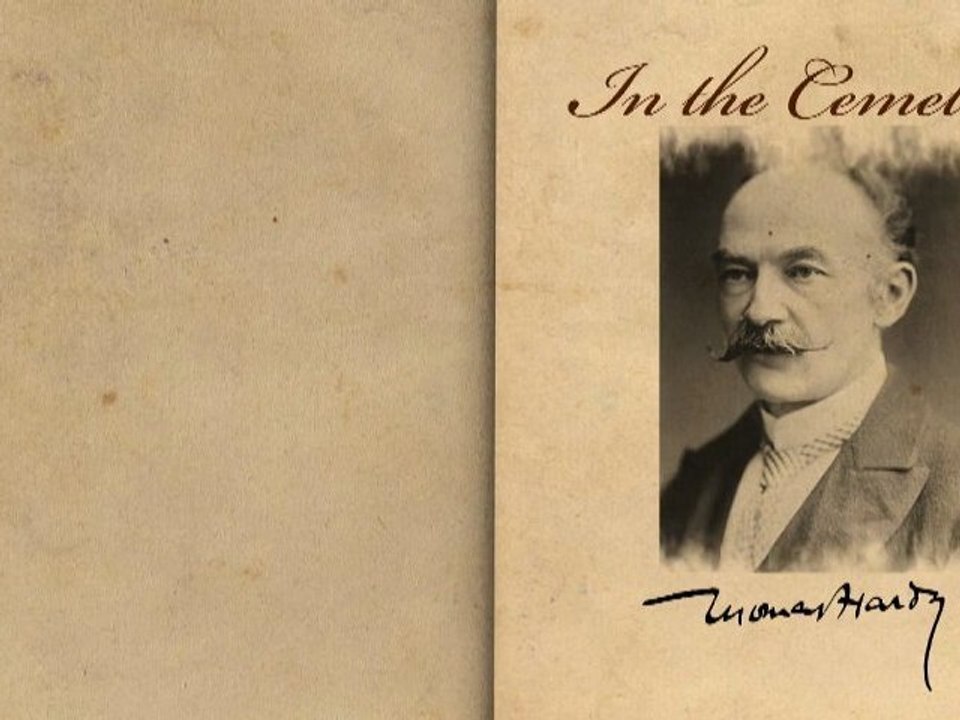 In the Cemet
Thomas Hardy